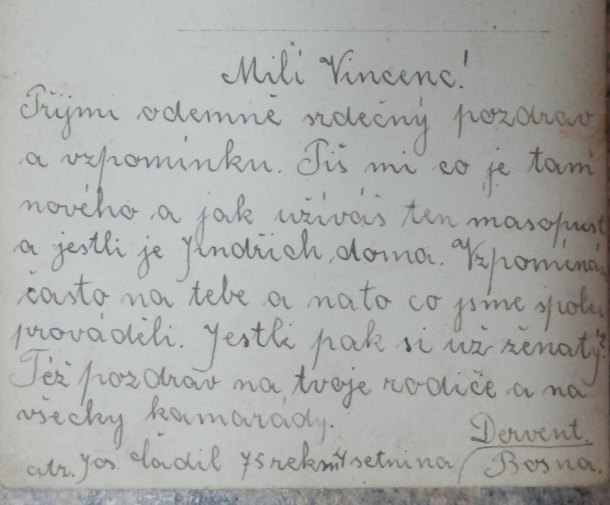 Milí Vincenc!
Přijmi odemně srdečný pozdrav
a vzpomínku. Piš mi co je tam
nového a jak užíváš ten masopust
a jestli je Jindřich doma. Vzpomínám
často na tebe a nato co jsme spolu
prováděli. Jestli pak si už ženatý?
Též pozdrav na tvoje rodiče a na
všecky kamarády.
Dervent.
atr. Jos Ládil 75 setnina Bosna.